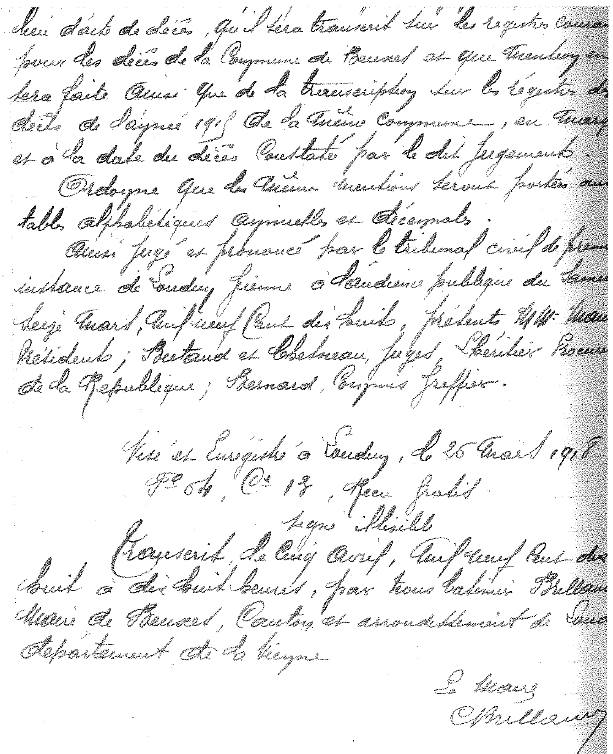 lieu d'acte de décès, qu'il sera transcrit sur les registres
pour les décès de la Commune de Beuxes et que mention en
sera faite ainsi que de la transcription sur les registres de
décès de l'année 1915 de la même commune, en marge
et à la date du décès constaté par le dit jugement.
Ordonne que les mêmes mentions seront portées aux
tables alphabétiques annuelles et décennales.
Ainsi jugé et prononcé par le tribunal civil de prem
instance de Loudun Vienne à l'audience publique du Samedi
Seize Mars, mil neuf Cent dix huit, présents MM.
Président; Bertaud et Chesneau, Juges, Lhéritier Procure
de la République; Bernard, Commis Greffier.
Visé et Enregistré à Loudun, le 26 Mars 1918
Fo 54, Ce 13, Reçu Gratis
signé illisible
Transcrit, le cinq avril, mil neuf Cent dix
huit à dix huit heures, par nous Casimir Brillaud
Maire de Beuxes, Canton et arrondissement de Loud
département de la Vienne
Le Maire
CBrillaud